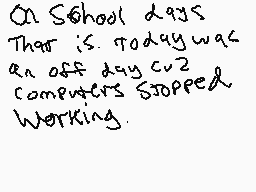 On School days
That is. Today was
an off day cuz
computers stopped
working.